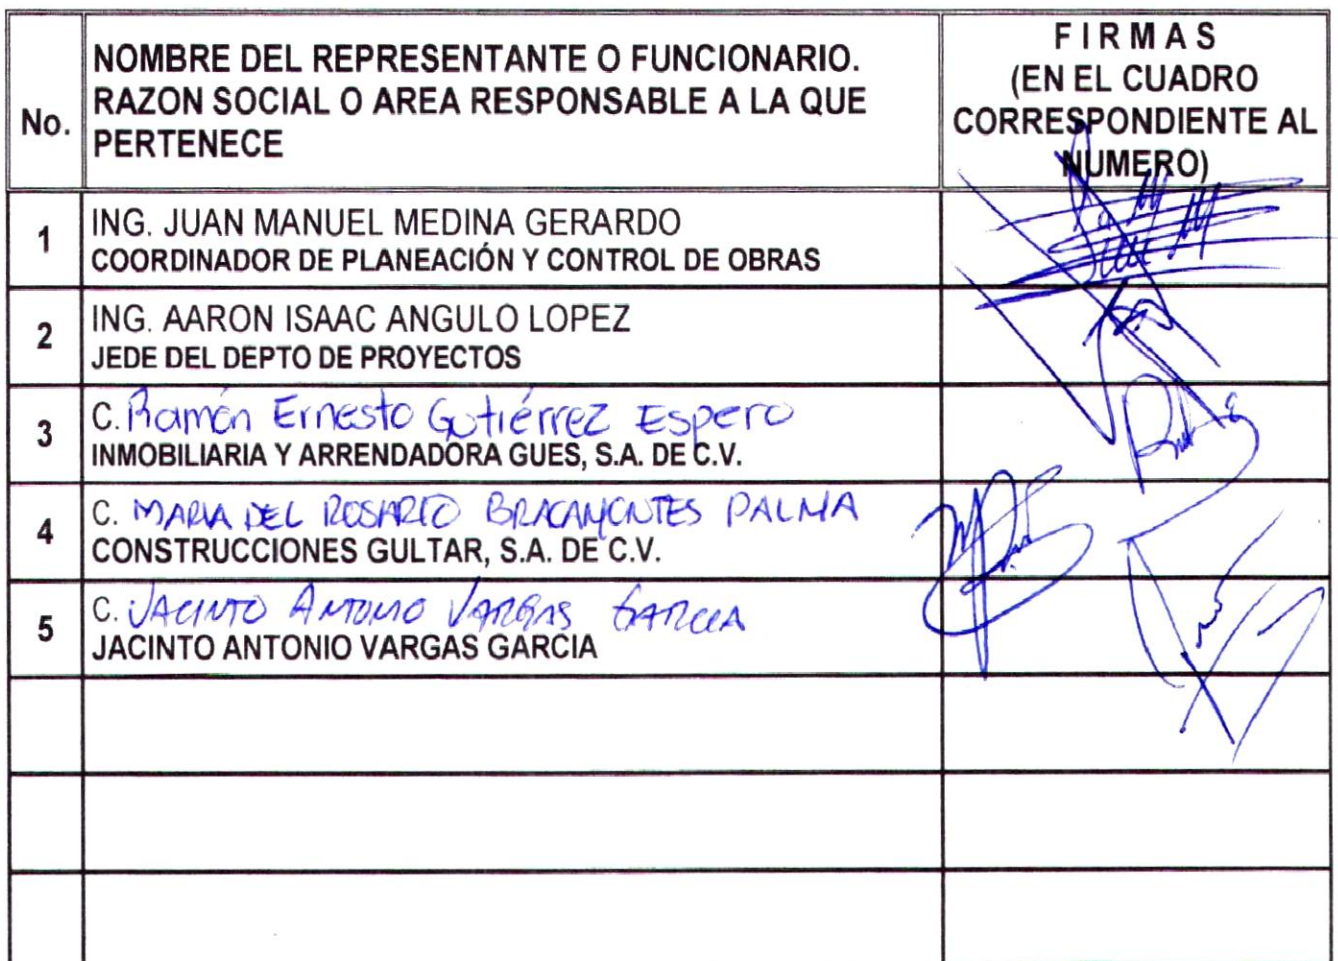 No.
NOMBRE DEL REPRESENTANTE O FUNCIONARIO.
RAZON SOCIAL O AREA RESPONSABLE A LA QUE
PERTENECE
FIRMAS
(EN EL CUADRO
CORRESPONDIENTE AL
NUMERO)
1
ING. JUAN MANUEL MEDINA GERARDO
COORDINADOR DE PLANEACIÓN Y CONTROL DE OBRAS
2
ING. AARON ISAAC ANGULO LOPEZ
JEDE DEL DEPTO DE PROYECTOS
3
C. Ramón Ernesto Gutiérrez Espero
INMOBILIARIA Y ARRENDADORA GUES, S.A. DE C.V.
4
C. MARIA DEL ROSARIO BRACAMONTES PALMA
CONSTRUCCIONES GULTAR, S.A. DE C.V.
5
C. JACINTO ANTONIO VARGAS GARCIA
JACINTO ANTONIO VARGAS GARCIA